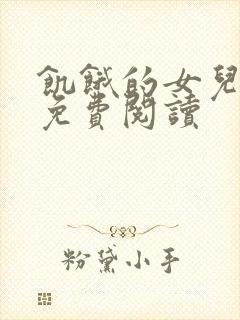 飢餓的女兒
免費閱讀
粉黛小手